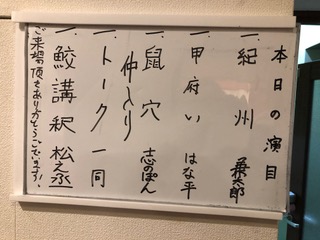 本日の演目
一.紀州 兼太郎
一.甲府い はな平
一.鼠穴 志のぽん
仲入り
一.トーク 一同
一.鮫講釈 松之丞
ご来場頂きありがとうございます!